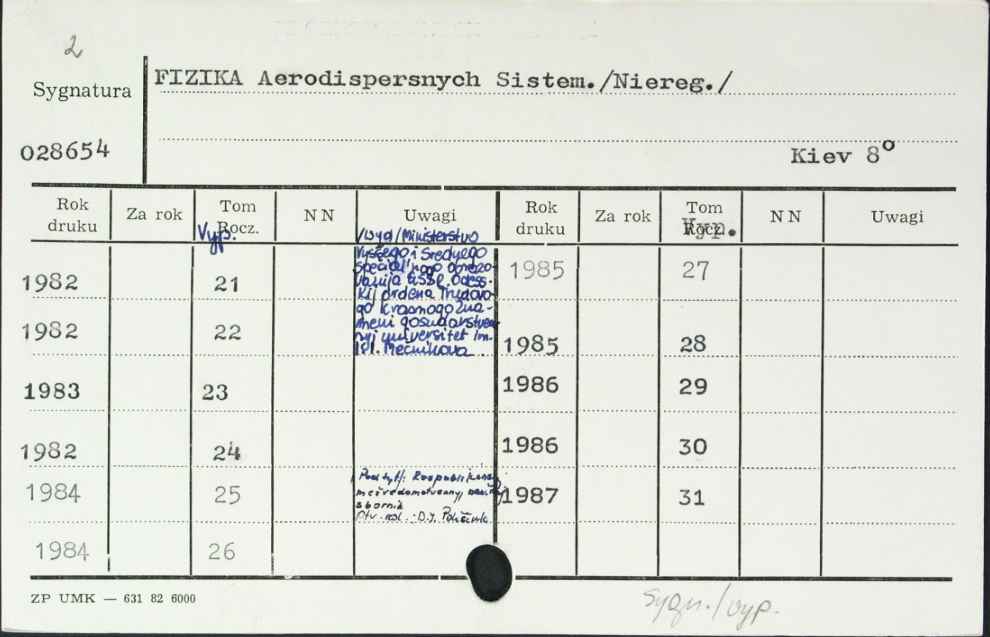 2
Sygnatura
FIZIKA Aerodispersnych Sistem./Niereg./
028654
Kiev 8º
Rok druku Za rok Tom Rocz. NN Uwagi Rok druku Za rok Tom NN Uwagi
Vyp. Vyp.
/Wyd/Ministerstvo
Vysšego i Srednego
special'nogo obrazo-
vanija USSR. Odess-
kij ordena Trudovo-
go Krasnogo Zna-
meni gosudarstven-
nyj universitet im.
I.I. Mečnikova.
1982 21 1985 27
1982 22 1985 28
1983 23 1986 29
1982 24 1986 30
1984 25 1987 31
Pod tyt.:
mežvedomstvennyj
sbornik
Otv. red.
1984 26
ZP UMK — 631 82 6000
Sygn./vyp.